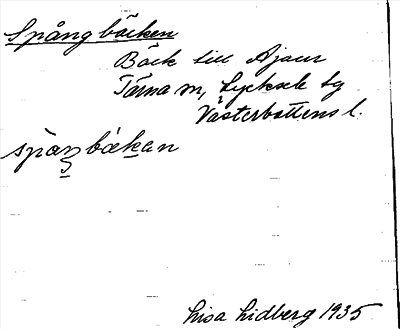 Spångbäcken
Bäck till Ajaur
Tärna sn, Lycksele tg
Västerbottens l.
spåŋbäkan
Lisa Lidberg 1935